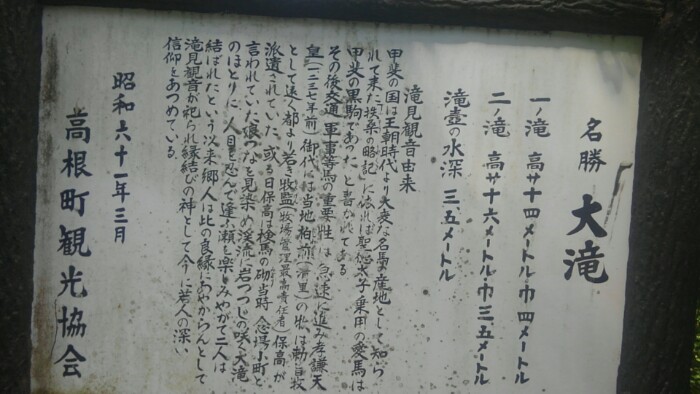 名勝 大滝
一ノ滝 高サ十四メートル巾四メートル
二ノ滝 高サ十六メートル巾三、五メートル
滝壺の水深 三、五メートル
滝見観音由来
甲斐の国は王朝時代より大変な名馬の産地として知ら
れて来た「扶桑の略記」に依れば聖徳太子乗用の愛馬は
甲斐の黒駒であった、と書かれてある
その後交通軍事等馬の重要性は急速に進み孝謙天
皇(一二三七年前)御代には当地柏前(清里)の牧は勅旨牧
として遠く都より若き牧監(牧場管理最高責任者)保高が
派遣されていた、或る日保高は検馬の砌当時念場小町と
言われていた娘つなを見染め渓流に岩つつじの咲く大滝
のほとりに人目を忍んで逢う瀬を楽しみやがて二人は
結ばれたという次来郷人は此の良縁にあやからんとして
滝見観音が祀られ縁結びの神として今に若人の深い
信仰をあつめている。
昭和六十一年三月
高根町観光協会